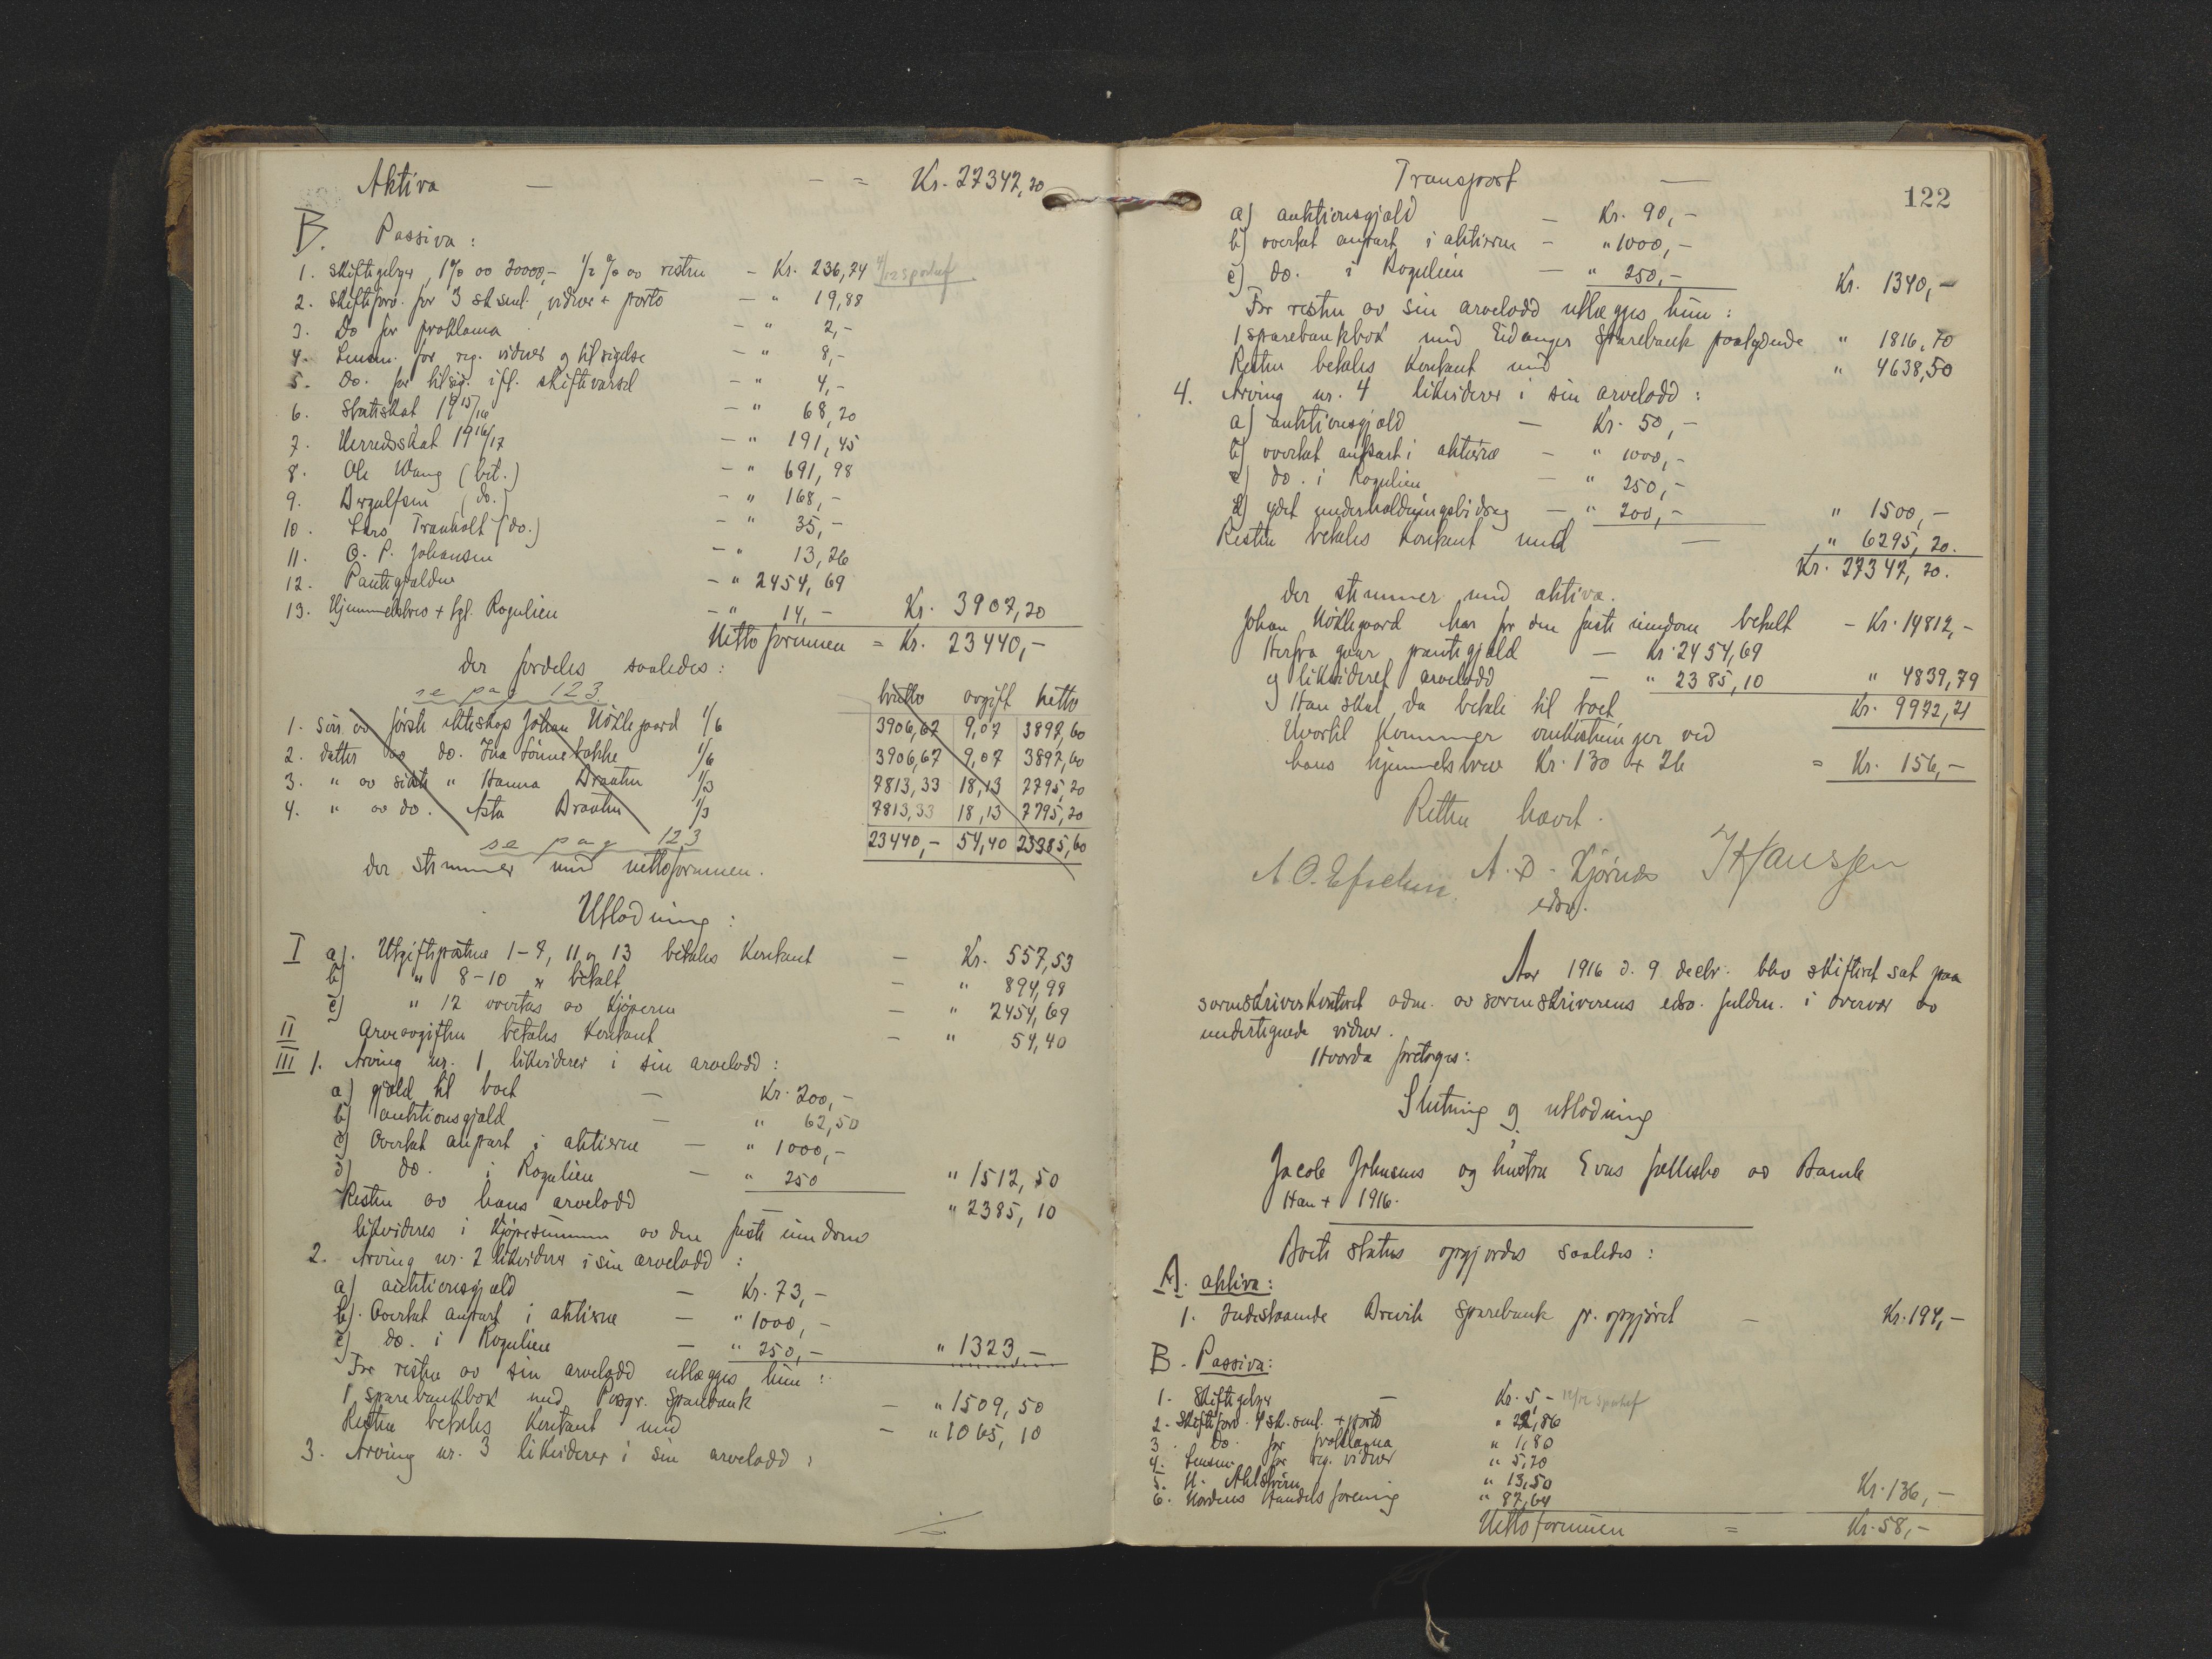 Aktiva — - = Kr. 27347,20
B. Passiva:
1. Skiftegebyr, 1% av 20000,- 1/2 % av resten - Kr. 236,74
2. Skifteforv. for 3 sk saml., vidner + porto - " 19,88
3. Do for proklama - " 2,-
4. Lensm. for reg. vidner og tilsigelse - " 8,-
5. do. for tilsig. ifl. skiftevarsel - " 4,-
6. Statsskat 1915/16 - " 68,20
7. Herredsskat 1916/17 - " 191,45
8. Ole Wang (bet.) - " 691,98
9. (do.) - " 168,-
10. Lars Tranholt (do.) - " 35,-
11. O. P. Johansen - " 13,26
12. Pantegjælden - " 2454,69
13. Hjemmelsbrev + tgl. Rogulien - " 14,- Kr. 3907,20
Netto formuen = Kr. 23440,-
der fordeles saaledes:
se pag 123
brutto avgift netto
1. sön av første ekteskap Johan Nöklegaard 1/6 3906,67 9,07 3897,60
2. datter av do. Ina 1/6 3906,67 9,07 3897,60
3. " av sidste " Hanna Braaten 1/3 7813,33 18,13 7795,20
4. " av do. Asta Braaten 1/3 7813,33 18,13 7795,20
23440,- 54,40 23385,60
se pag 123
der stemmer med nettoformuen.
Utlodning:
I a). Utgiftspostene 1-7, 11 og 13 betales kontant - Kr. 557,53
b) " 8-10 er betalt - " 894,98
c) " 12 overtas av kjøperen - " 2454,69
II Arveavgiften betales kontant - " 54,40
III 1. Arving nr. 1 likviderer i sin arvelodd:
a) gjeld til boet - Kr. 200,-
b) auktionsgjæld - " 62,50
c) Overtat anpart i aktierne - " 1000,-
d) do. i Rogulien - " 250 " 1512,50
Resten av hans arvelodd — " 2385,10
likvideres i kjøpesummen av den faste eiendom
2. Arving nr. 2 likviderer i sin arvelodd:
a) auktionsgjæld - Kr. 73,-
b). Overtat anpart i aktierne - " 1000,-
c) do. i Rogulien - " 250,- " 1323,-
For resten av sin arvelodd utlægges hun:
1 sparebankbok med Porsgr. Sparebank - " 1509,50
Resten betales kontant med - " 1065,10
3. Arving nr. 3 likviderer i sin arvelodd:
122
Transport —
a) auktionsgjæld - Kr. 90,-
b) overtat anpart i aktierne - " 1000,-
c) do. i Rogulien - " 250,- Kr. 1340,-
For resten av sin arvelodd utlægges hun:
1 sparebankbok med Eidanger Sparebank paalydende " 1816,70
Resten betales kontant med " 4638,50
4. Arving nr. 4 likviderer i sin arvelodd:
a) auktionsgjæld - Kr. 50,-
b) overtat anpart i aktierne - " 1000,-
c) do. i Rogulien - " 250,-
d) ydet underholdningsbidrag - " 200,- " 1500,-
Resten betales kontant med — " 6295,20.
Kr. 27347,20.
der stemmer med aktiva.
Johan Nöklegaard har for den faste eiendom betalt - Kr. 14812,-
Herfra gaar pantegjæld — Kr. 2454,69
og likvideret arvelodd - " 2385,10 " 4839,79
Han skal da betale til boet Kr. 9972,21
Hvortil kommer omkostninger ved
hans hjemmelsbrev Kr. 130 + 26 = Kr. 156,-
Retten hævet.
A. D. Kjørnæs JHanssen
edsv.
Aar 1916 d. 9 decbr. blev skifteret sat paa
sorenskriverkontoret adm. av sorenskriverens edsv. fuldm. i overvær av
undertegnede vidner.
Hvorda foretoges:
Slutning og utlodning
i
Jacob Johnsens og hustru Evas fællesbo av Bamle
Han + 1916.
Boets status opgjordes saaledes:
A. aktiva:
1. Indestaaende Brevik Sparebank pr. opgjöret - Kr. 194,-
B. Passiva:
1. Skiftegebyr - Kr. 5,-
2. Skifteforv. 4 sk. saml. + porto " 22,86
3. Do. for proklama " 1,80
4. Lensm. for reg. vidner " 5,20
5. N. Ahlström " 13,50
6. Nordens Handels forening " 87,64 Kr. 136,-
Nettoformuen = Kr. 58,-